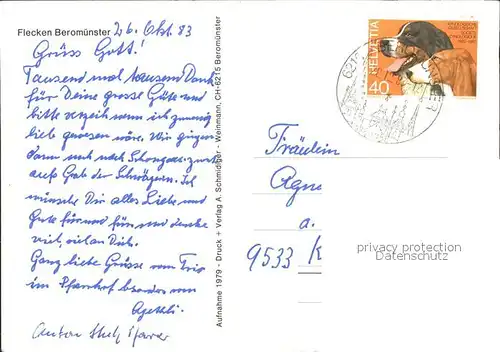 Flecken Beromünster 26. Okt. 83
Grüss Gott!
Tausend mal tausend Dank
für Deine grosse Güte und
bitte verzeih wenn ich zuwenig
lieb gewesen wäre. Wir gingen
dann noch nach Schongau
aufs Grab der Schwägerin. Ich
wünsche Dir alles Liebe und
Gute für und für und denke
viel, viel an Dich.
Ganz liebe Grüsse vom Trio
im Pfarrhof besonders von
Agethli.
Anton Pfarrer
Aufnahme 1979 - Druck + Verlag A. Schmidiger - Weinmann, CH-6215 Beromünster
HELVETIA
40
6215
Fräulein
Agn
a.
9533 K
privacy protection
Datenschutz